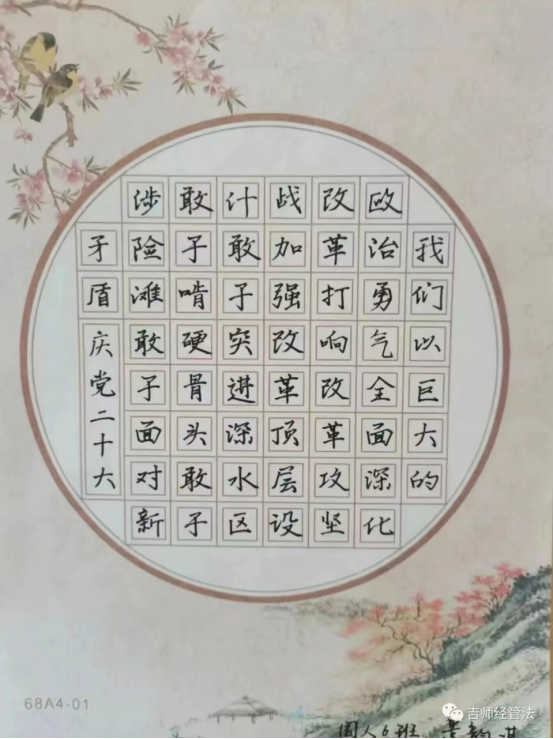 我们以巨大的
政治勇气全面深化
改革打响改革攻坚
战加强改革顶层设
计敢于突进深水区
敢于啃硬骨头敢于
涉险滩敢于面对新
矛盾
庆党二十大
68A4-01
吉师经管法
国人6班